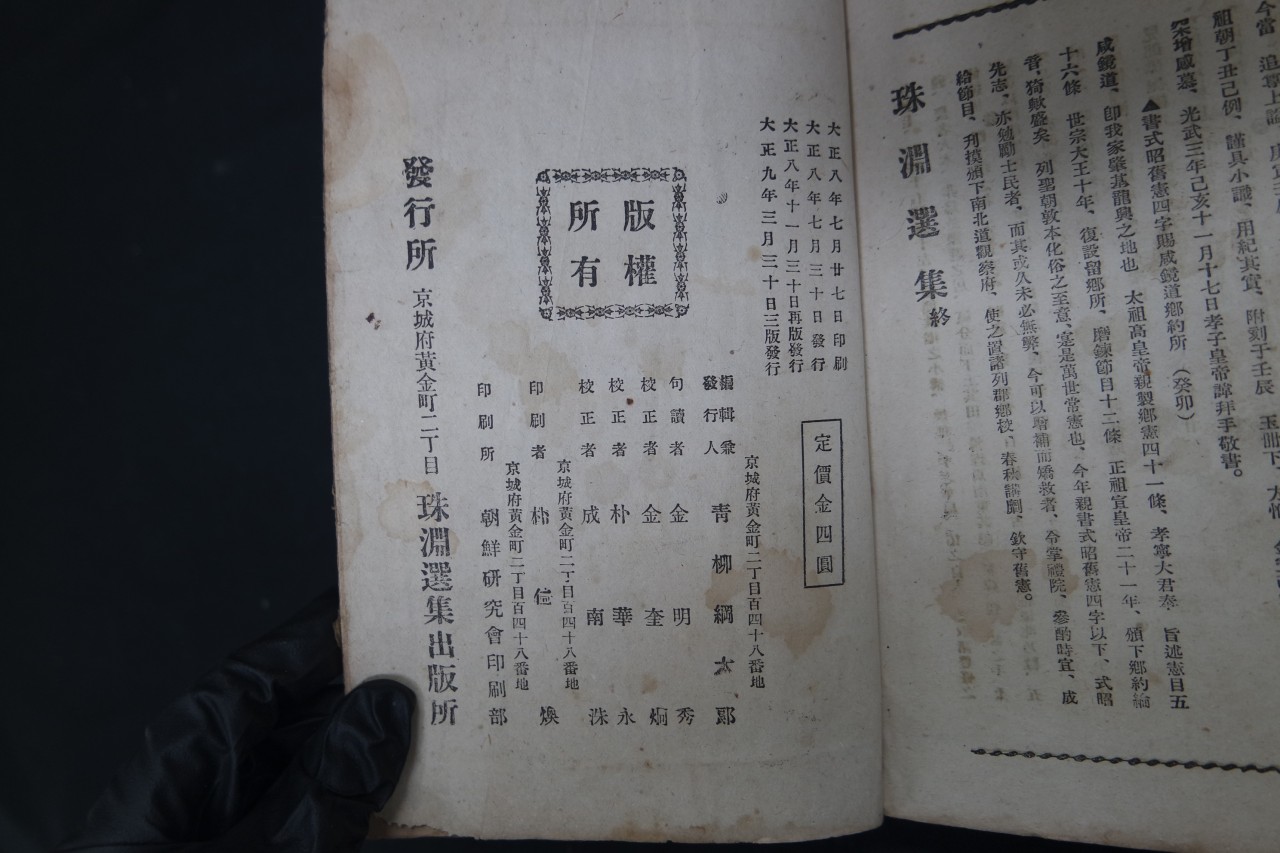 祖朝丁丑己例、謹具小識、用紀其實、附刻于壬辰
增感慕、光武三年己亥十一月十七日孝子皇帝諱拜手敬書。
▲書式昭舊憲四字賜咸鏡道鄕約所（癸卯）
咸鏡道、卽我家肇基龍興之地也　太祖高皇帝親製鄕憲四十一條、孝寧大君奉　旨述憲目五
十六條　世宗大王十年、復設留鄕所、磨鍊節目十二條　正祖宣皇帝二十一年、頒下鄕約綸
音、猗歟盛矣　列聖朝敦本化俗之至意、寔是萬世常憲也、今年親書式昭舊憲四字以下、式昭
先志、亦勉勵士民者、而其或久未必無弊、今可以增補而矯救者、令掌禮院、參酌時宜、成
給節目、刊摸頒下南北道觀察府、使之置諸列郡鄕校、春秋講劘、欽守舊憲。
珠淵選集終
大正八年七月廿七日印刷
大正八年七月三十日發行
大正八年十一月三十日再版發行
大正九年三月三十日三版發行
定價金四圓
版權
所有
京城府黃金町二丁目百四十八番地
編輯兼
發行人　靑柳綱太郞
句讀者　金明秀
校正者　金奎炯
校正者　朴華永
校正者　成南洙
京城府黃金町二丁目百四十八番地
印刷者　朴煥
京城府黃金町二丁目百四十八番地
印刷所　朝鮮硏究會印刷部
發行所　京城府黃金町二丁目　珠淵選集出版所